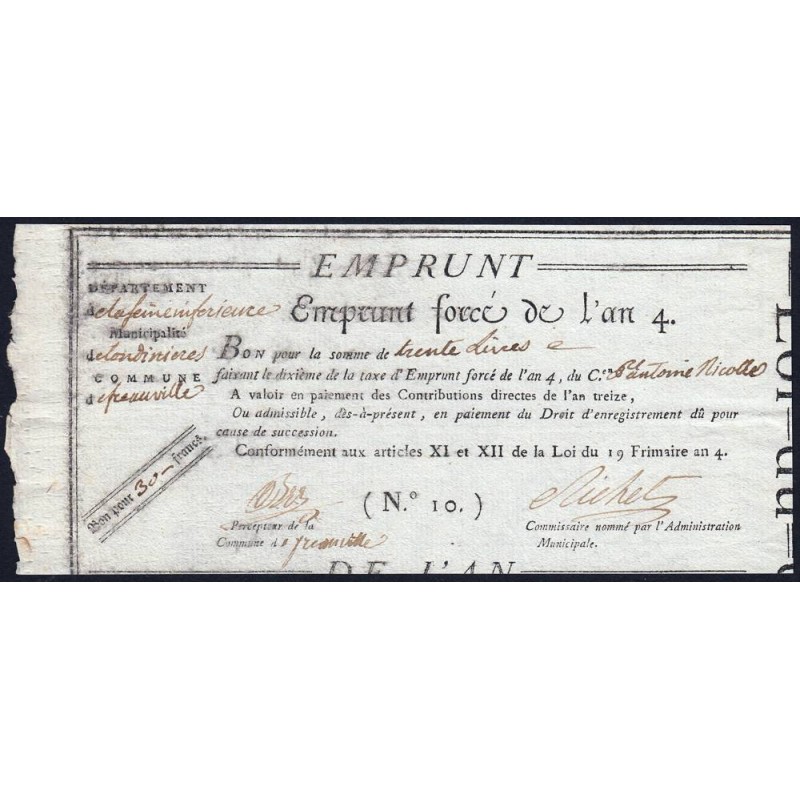 EMPRUNT
DÉPARTEMENT
de la seine inferieure
Emprunt forcé de l'an 4.
Municipalité
de Londinieres
BON pour la somme de trente Livres
COMMUNE
de freauville
faisant le dixième de la taxe d'Emprunt forcé de l'an 4, du C.en Antoine Nicolle
A valoir en paiement des Contributions directes de l'an treize,
Ou admissible, dès-à-présent, en paiement du Droit d'enregistrement dû pour
cause de succession.
Conformément aux articles XI et XII de la Loi du 19 Frimaire an 4.
Bon pour 30 francs.
(N.° 10.)
Richet
Percepteur de la
Commune de freauville
Commissaire nommé par l'Administration
Municipale.
DE L'AN
Loi du